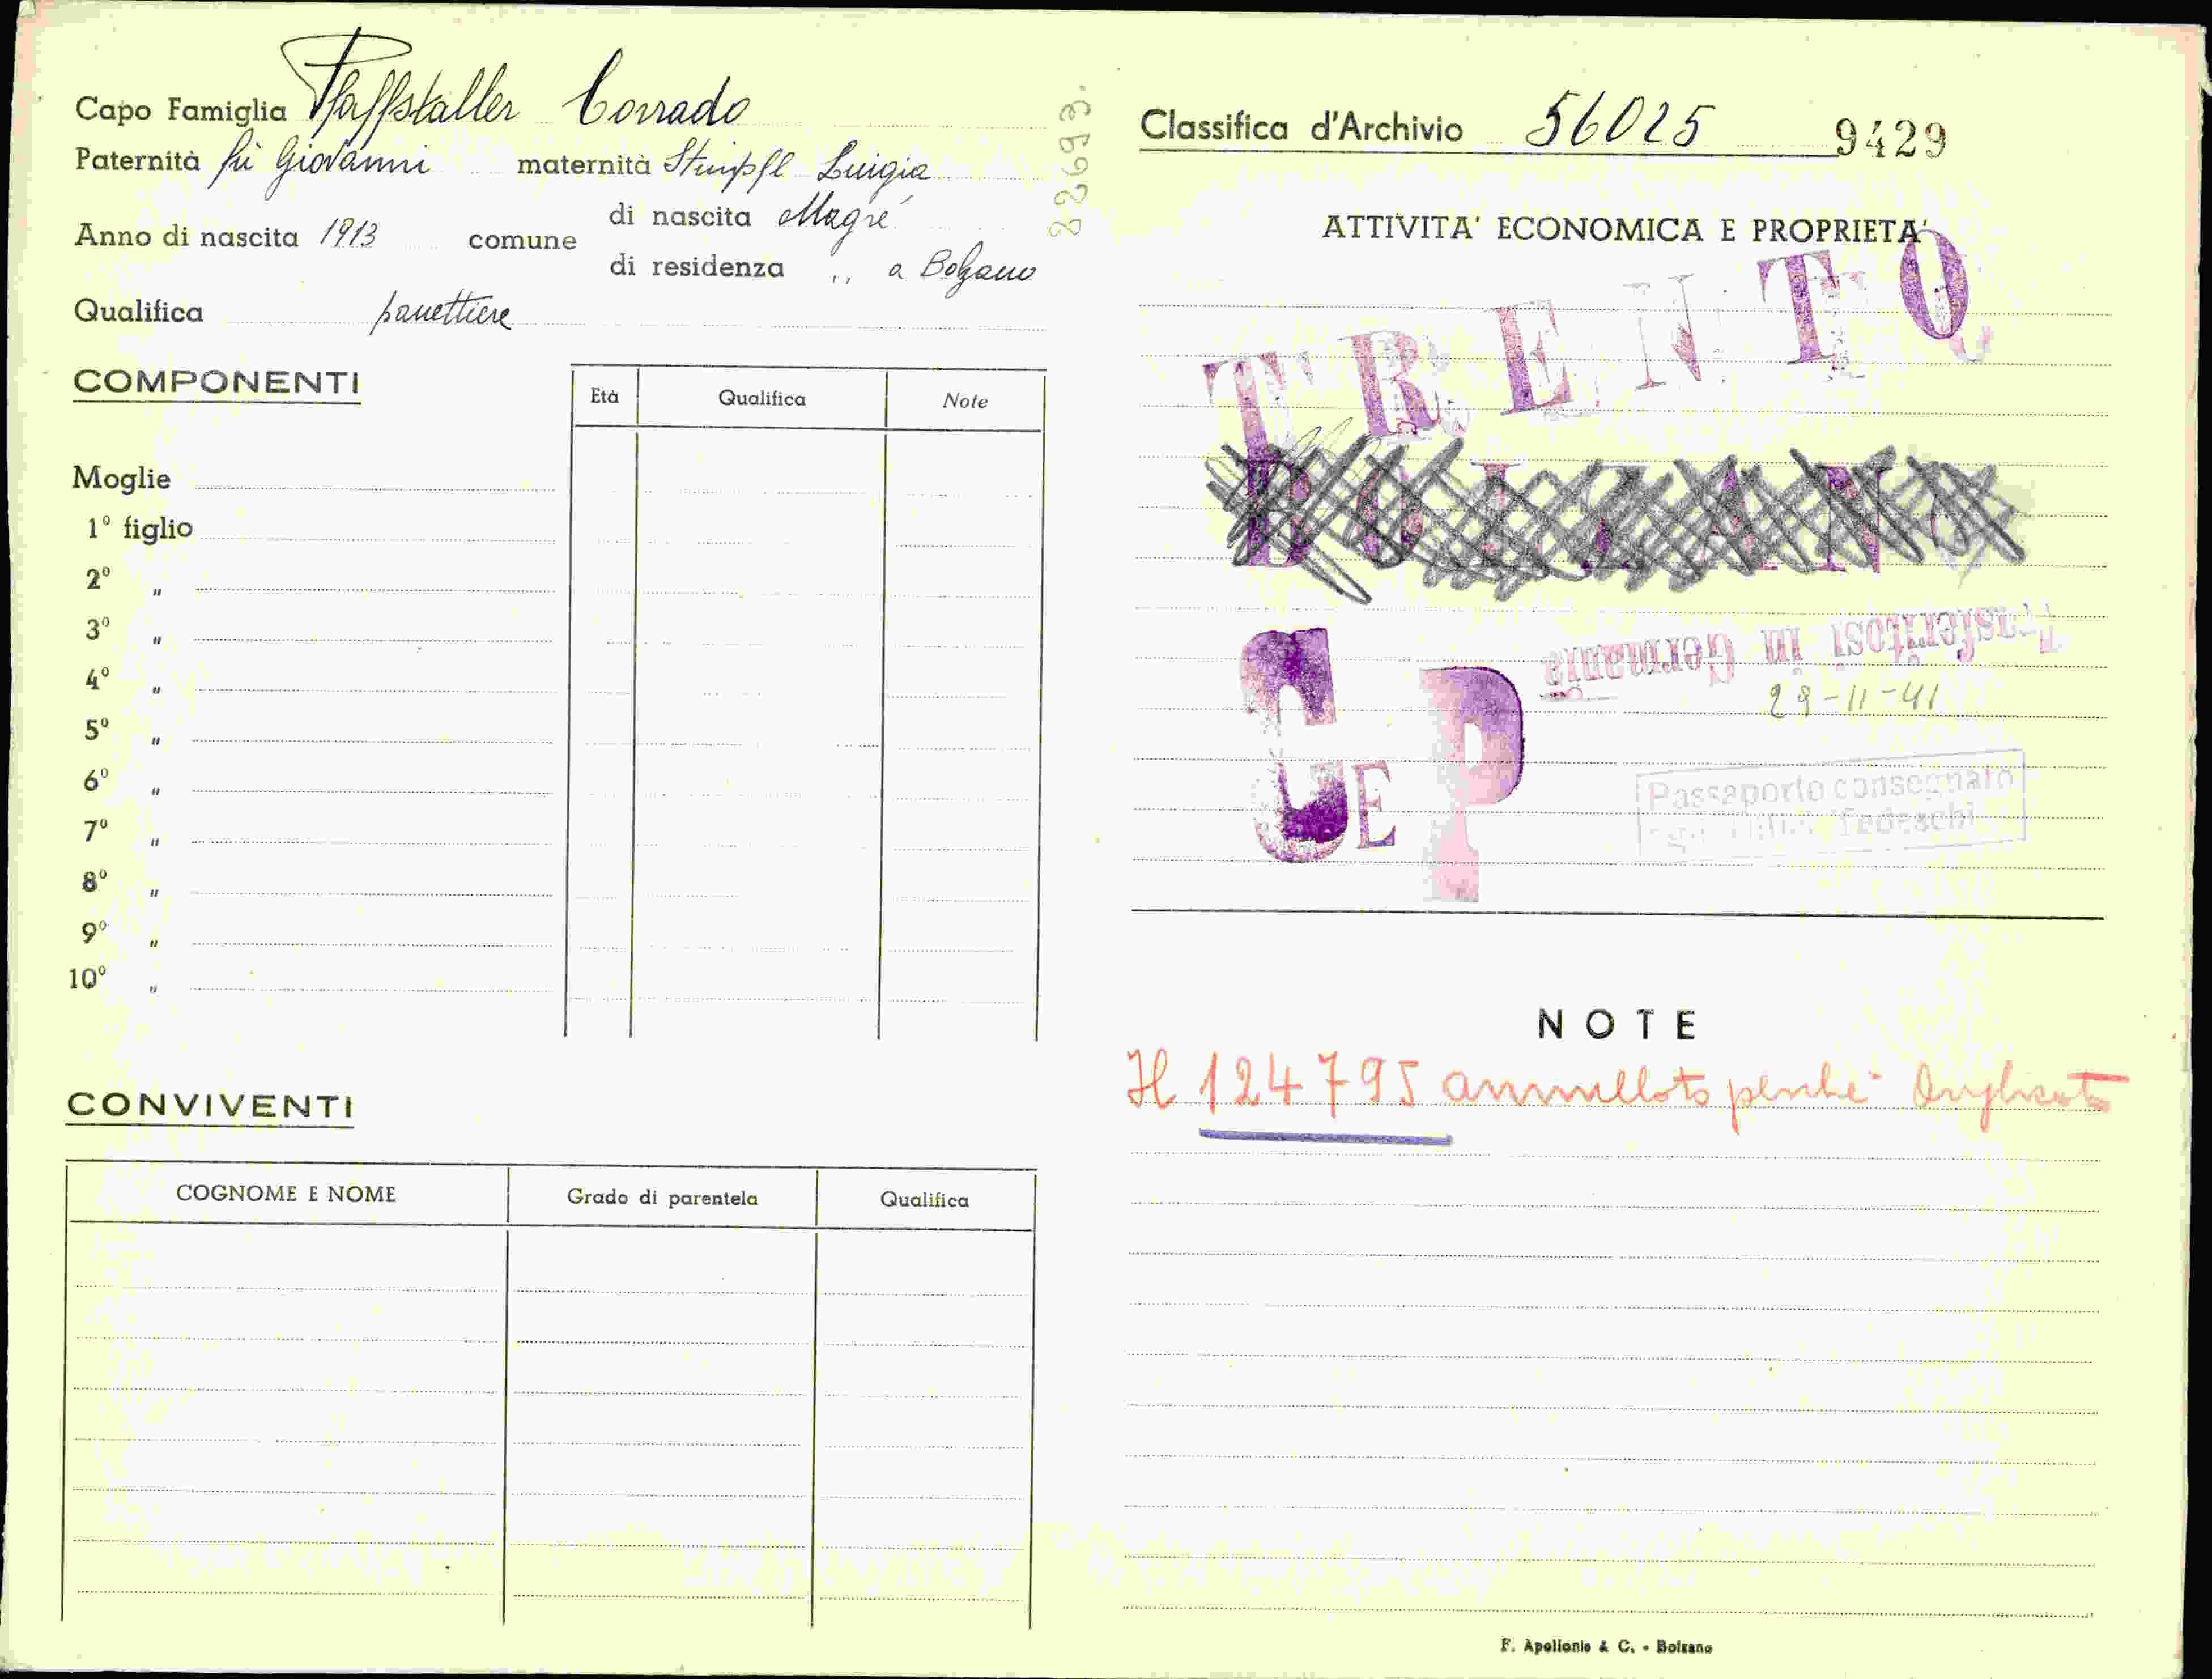 Capo Famiglia Pfaffstaller Corrado
Paternità fu Giovanni maternità Stimpfl Luigia
Anno di nascita 1913 comune di nascita Magrè
di residenza ,, a Bolzano
Qualifica panettiere
22693.
COMPONENTI
Età Qualifica Note
Moglie
1° figlio
2° "
3° "
4° "
5° "
6° "
7° "
8° "
9° "
10° "
CONVIVENTI
COGNOME E NOME Grado di parentela Qualifica
Classifica d'Archivio 56025 9429
ATTIVITA' ECONOMICA E PROPRIETA'
TRENTO
BOLZANO
Trasferitosi in Germania
29-11-41
C E P
Passaporto consegnato
Tedeschi
NOTE
Il 124795 annullato perchè duplicato
F. Apollonio & C. - Bolzano